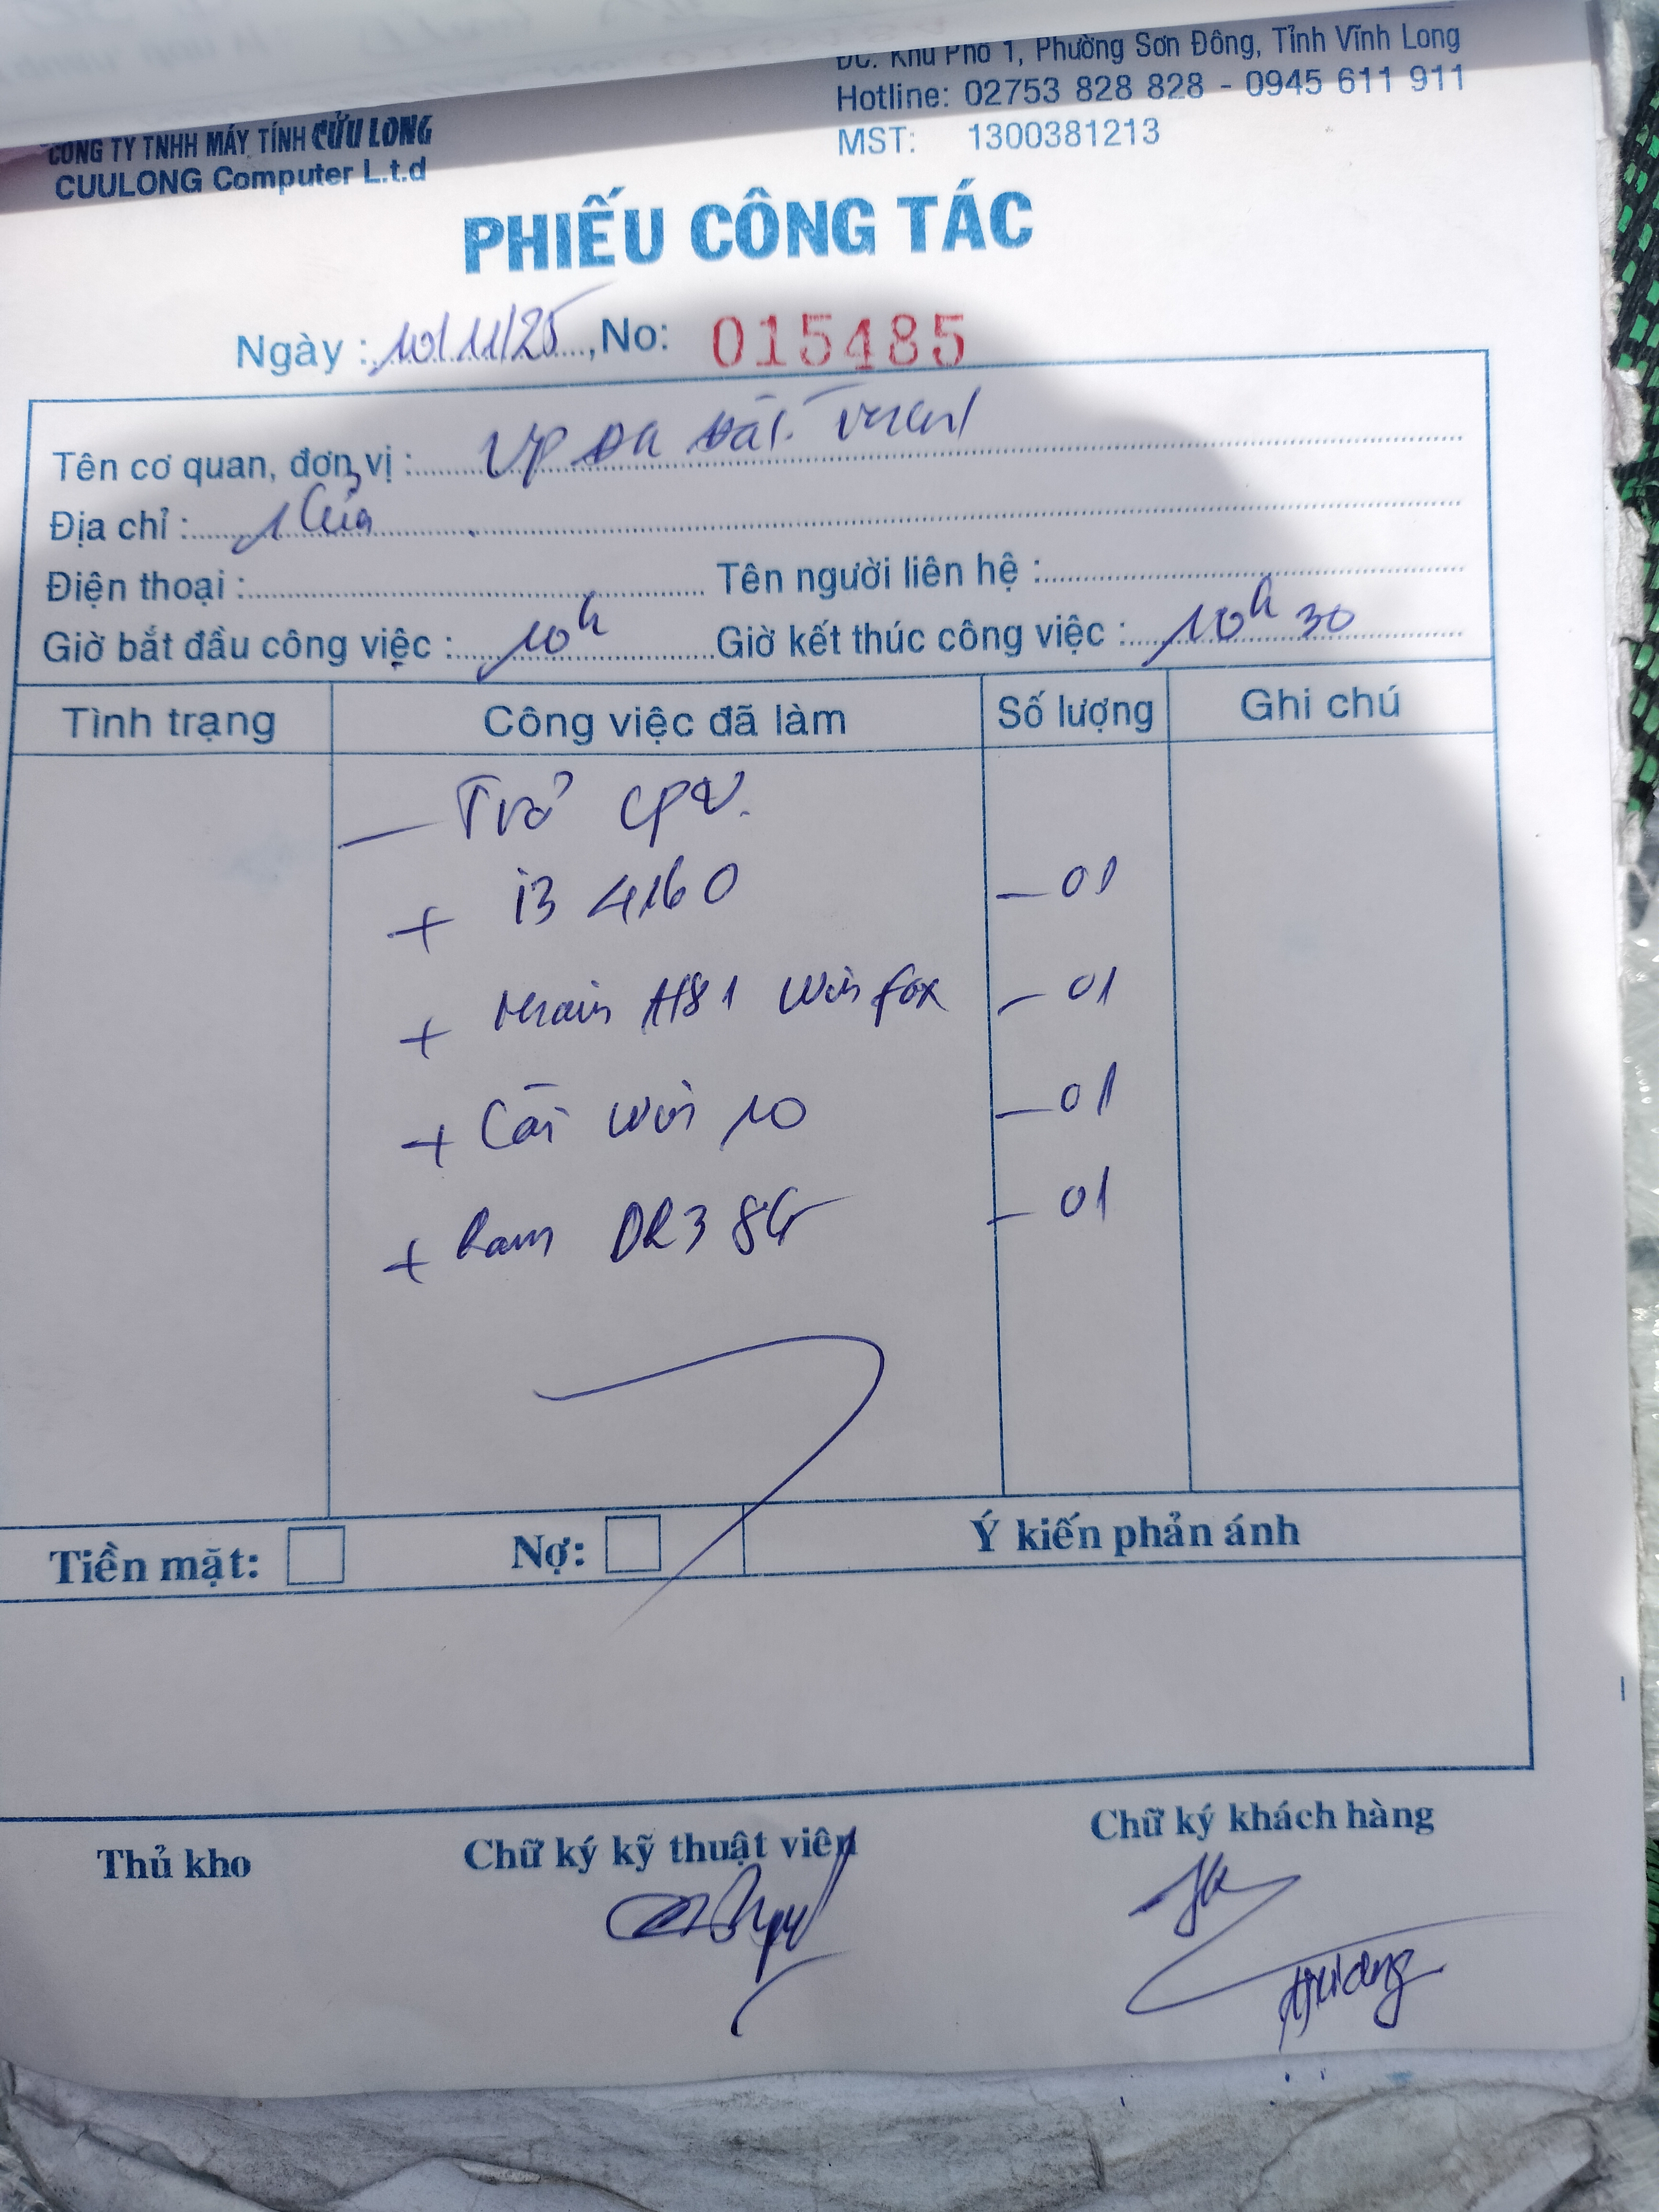 ĐC: Khu Phố 1, Phường Sơn Đông, Tỉnh Vĩnh Long
Hotline: 02753 828 828 - 0945 611 911
MST: 1300381213
CÔNG TY TNHH MÁY TÍNH CỬU LONG
CUULONG Computer L.t.d
PHIẾU CÔNG TÁC
Ngày : 10/11/25, No: 015485
Tên cơ quan, đơn vị : VP ĐK Đất
Địa chỉ : 1 Cửa
Điện thoại : Tên người liên hệ :
Giờ bắt đầu công việc : 10h Giờ kết thúc công việc : 10h 30
Tình trạng Công việc đã làm Số lượng Ghi chú
- Trả CPU.
+ i3 4160 - 01
+ Main H81 Winfox - 01
+ Cài Win 10 - 01
+ Ram DR3 8G - 01
Tiền mặt: Nợ: Ý kiến phản ánh
Thủ kho Chữ ký kỹ thuật viên Chữ ký khách hàng